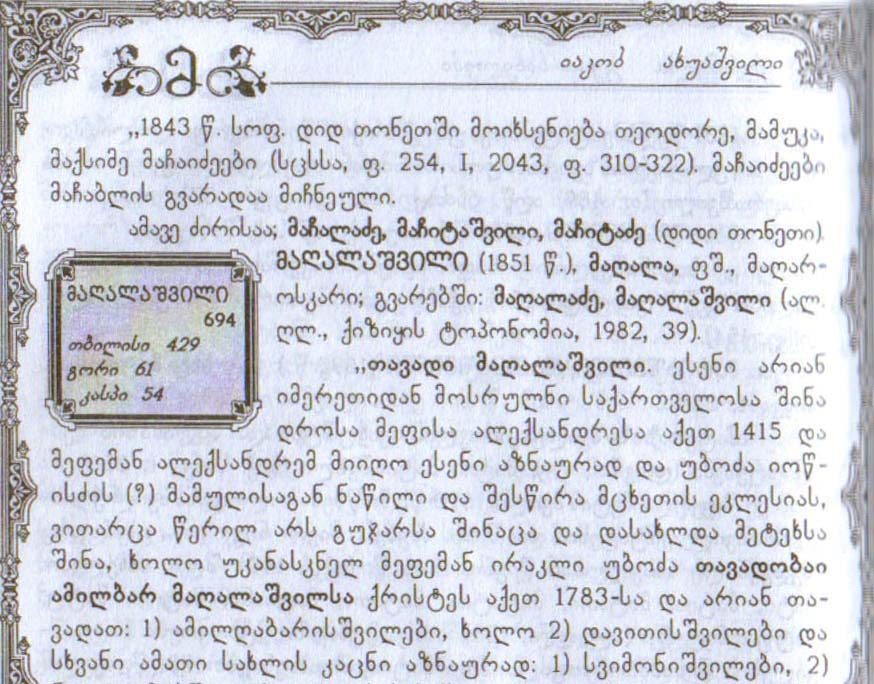 მ
იაკობ ახუაშვილი
„1843 წ. სოფ. დიდ თონეთში მოიხსენიება თეოდორე, მამუკა,
მაქსიმე მაჩაიძეები (სცსსა, ფ. 254, I, 2043, ფ. 310-322). მაჩაიძეები
მაჩაბლის გვარადაა მიჩნეული.
ამავე ძირისაა; მაჩალაძე, მაჩიტაშვილი, მაჩიტაძე (დიდი თონეთი).
მაღალაშვილი
694
თბილისი 429
გორი 61
კასპი 54
მაღალაშვილი (1851 წ.), მაღალა, ფშ., მაღარ-
ოსკარი; გვარებში: მაღალაძე, მაღალაშვილი (ალ.
ღლ., ქიზიყის ტოპონომია, 1982, 39).
„თავადი მაღალაშვილი. ესენი არიან
იმერეთიდან მოსრულნი საქართველოსა შინა
დროსა მეფისა ალექსანდრესა აქეთ 1415 და
მეფემან ალექსანდრემ მიიღო ესენი აზნაურად და უბოძა იოწ-
ისძის (?) მამულისაგან ნაწილი და შესწირა მცხეთის ეკლესიას,
ვითარცა წერილ არს გუჯარსა შინაცა და დასახლდა მეტეხსა
შინა, ხოლო უკანასკნელ მეფემან ირაკლი უბოძა თავადობაი
ამილბარ მაღალაშვილსა ქრისტეს აქეთ 1783-სა და არიან თა-
ვადათ: 1) ამილღაბარისშვილები, ხოლო 2) დავითისშვილები და
სხვანი ამათი სახლის კაცნი აზნაურად: 1) სვიმონიშვილები, 2)